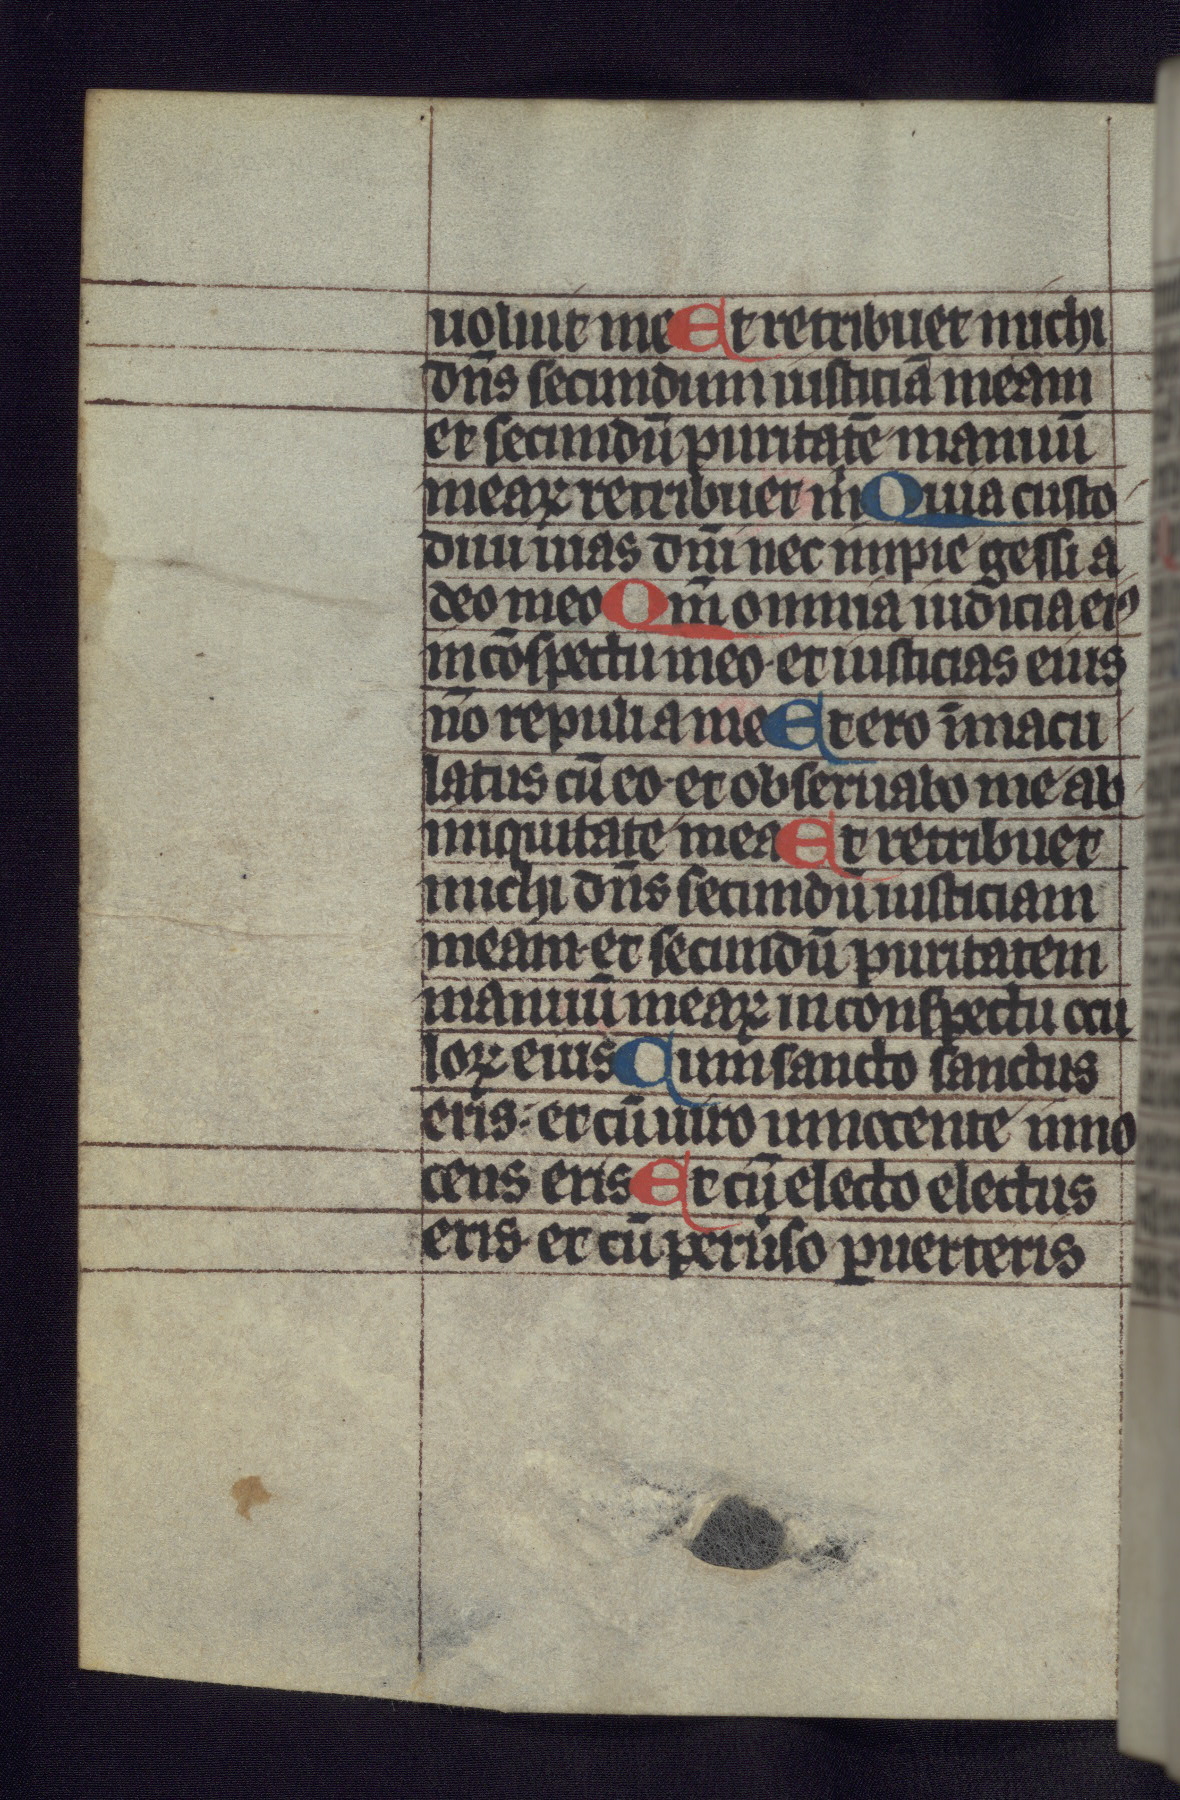 uoluit me Et retribuet michi
dn̄s secundum iusticiā meam
et secundū puritatē manuū
meaꝝ retribuet m̄ Quia custo
diui uias dn̄i nec impie gessi a
deo meo Qm̄ omnia iudicia eiꝰ
in cōspectu meo · et iusticias eius
nō repuli a me Et ero īmacu
latus cū eo · et obseruabo me ab
iniquitate mea Et retribuet
michi dn̄s secundū iusticiam
meam · et secundū puritatem
manuū meaꝝ in conspectu ocu
loꝝ eius Cum sancto sanctus
eris · et cū uiro innocente inno
cens eris Et cū electo electus
eris · et cū peruſo puerteris